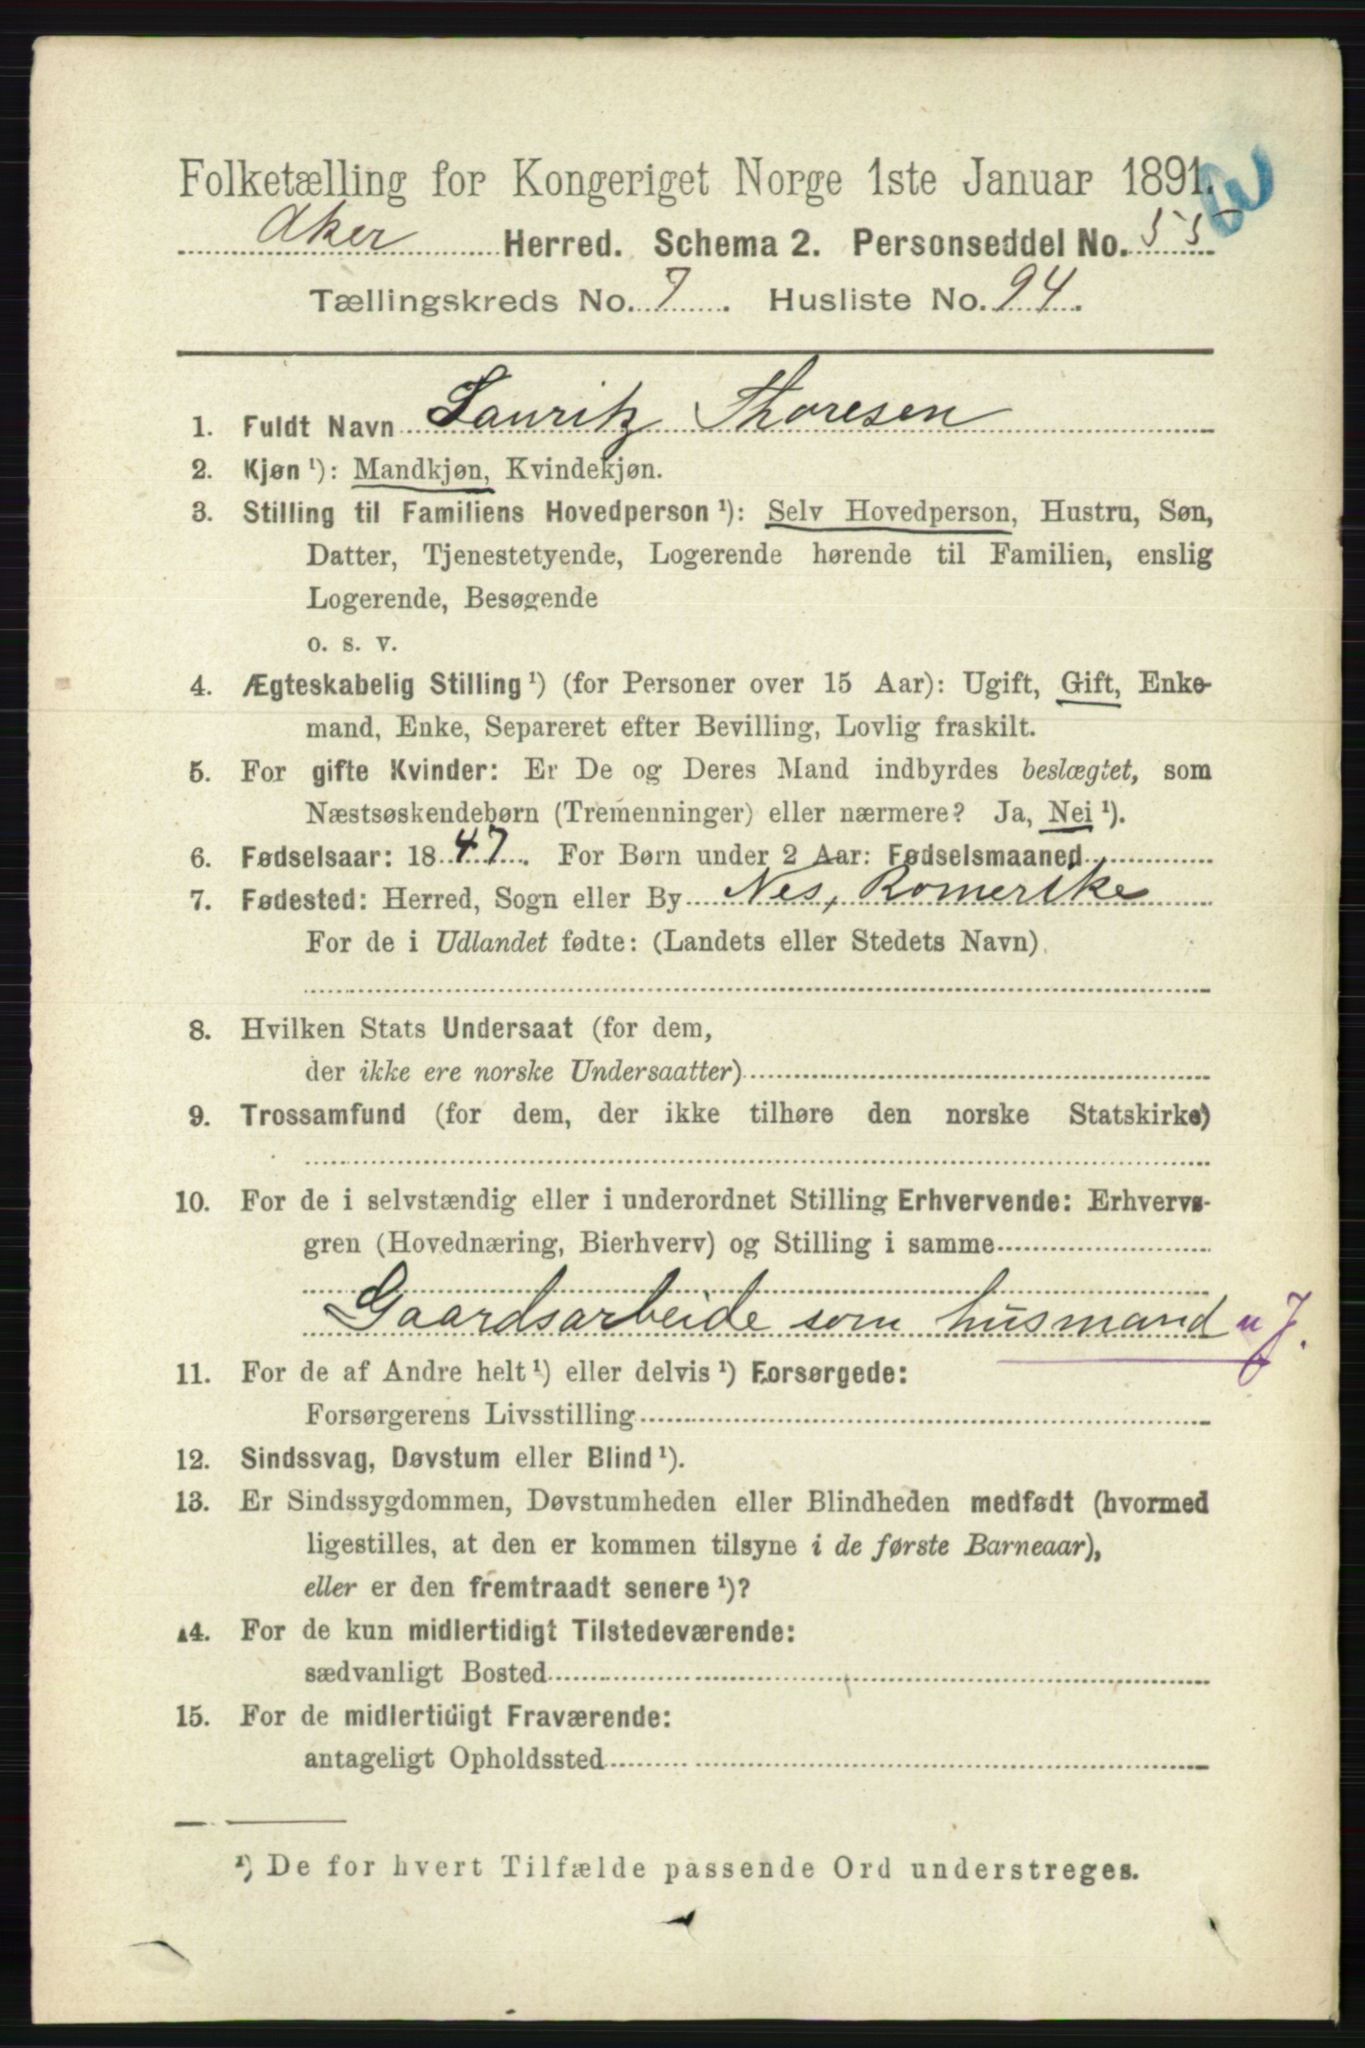 Folketælling for Kongeriget Norge 1ste Januar 1891.
Aker Herred. Schema 2. Personseddel No. 55
Tællingskreds No. 7. Husliste No. 94.
1. Fuldt Navn Lauritz Thoresen
2. Kjøn ¹): Mandkjøn, Kvindekjøn.
3. Stilling til Familiens Hovedperson ¹): Selv Hovedperson, Hustru, Søn,
Datter, Tjenestetyende, Logerende hørende til Familien, enslig
Logerende, Besøgende
o. s. v.
4. Ægteskabelig Stilling ¹) (for Personer over 15 Aar): Ugift, Gift, Enke-
mand, Enke, Separeret efter Bevilling, Lovlig fraskilt.
5. For gifte Kvinder: Er De og Deres Mand indbyrdes beslægtet, som
Næstsøskendebørn (Tremenninger) eller nærmere? Ja, Nei ¹).
6. Fødselsaar: 1847. For Børn under 2 Aar: Fødselsmaaned
7. Fødested: Herred, Sogn eller By Nes, Romerike
For de i Udlandet fødte: (Landets eller Stedets Navn)
8. Hvilken Stats Undersaat (for dem,
der ikke ere norske Undersaatter)
9. Trossamfund (for dem, der ikke tilhøre den norske Statskirke)
10. For de i selvstændig eller i underordnet Stilling Erhvervende: Erhvervs-
gren (Hovednæring, Bierhverv) og Stilling i samme
Gaardsarbeide som husmand u J.
11. For de af Andre helt ¹) eller delvis ¹) Forsørgede:
Forsørgerens Livsstilling
12. Sindssvag, Døvstum eller Blind ¹).
13. Er Sindssygdommen, Døvstumheden eller Blindheden medfødt (hvormed
ligestilles, at den er kommen tilsyne i de første Barneaar),
eller er den fremtraadt senere ¹)?
14. For de kun midlertidigt Tilstedeværende:
sædvanligt Bosted
15. For de midlertidigt Fraværende:
antageligt Opholdssted
¹) De for hvert Tilfælde passende Ord understreges.